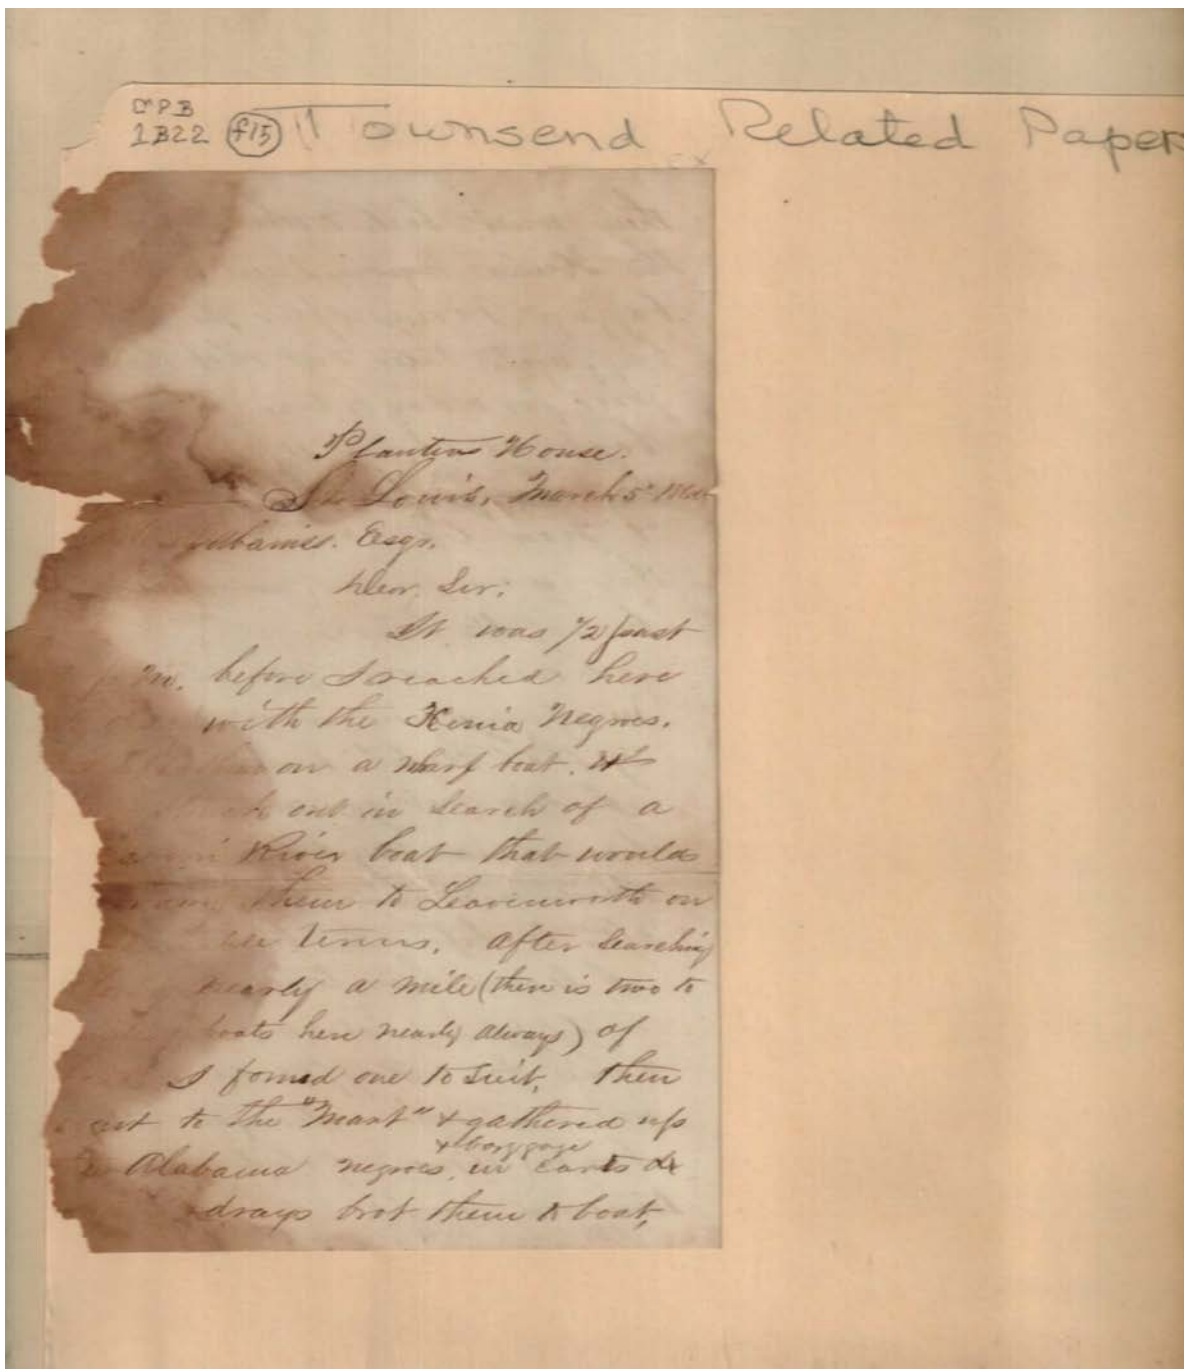 CPB
1B22 f15 Townsend Related Paper
Planters House.
St Louis, March 5
Esqr.
Dear Sir:
It was 1/2 past
m. before I reached here
with the Xenia Negroes.
on a wharf boat.
out in search of a
River boat that would
them to Leavenworth on
terms. After searching
nearly a mile (there is two to
boats here nearly always) of
I found one to suit, then
to the "Mart" & gathered up
Alabama negroes, & baggage in carts &
drays brot them to boat,